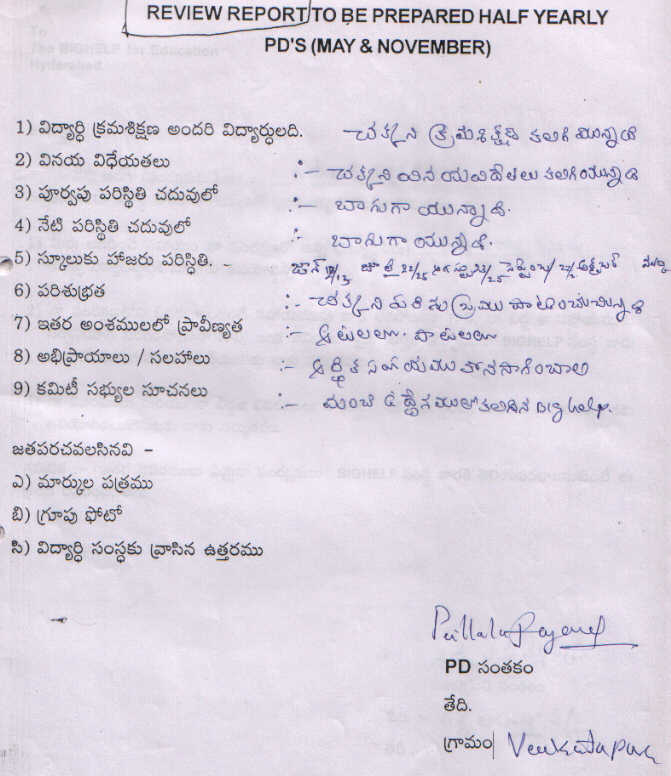 REVIEW REPORT TO BE PREPARED HALF YEARLY
PD'S (MAY & NOVEMBER)
1) విద్యార్ధి క్రమశిక్షణ అందరి విద్యార్ధులది. - చక్కని క్రమశిక్షణ కలిగి యున్నాడి
2) వినయ విధేయతలు :- చక్కని వినయవిదేతలు కలిగియున్నాడి
3) పూర్వపు పరిస్థితి చదువులో :- బాగుగా యున్నాడి.
4) నేటి పరిస్థితి చదువులో :- బాగుగా యున్నాడి.
5) స్కూలుకు హాజరు పరిస్థితి. - జూన్ జూలై 22/25
6) పరిశుభ్రత :- చక్కని
7) ఇతర అంశములలో ప్రావీణ్యత :- ఆటలలు. పాటలలు
8) అభిప్రాయాలు / సలహాలు :- ఆర్థిక సహయము కొనసాగించాలి
9) కమిటీ సభ్యుల సూచనలు :- మంచి Big help.
జతపరచవలసినవి –
ఎ) మార్కుల పత్రము
బి) గ్రూపు ఫోటో
సి) విద్యార్ధి సంస్థకు వ్రాసిన ఉత్తరము
PD సంతకం
తేది.
గ్రామం Venkatapur